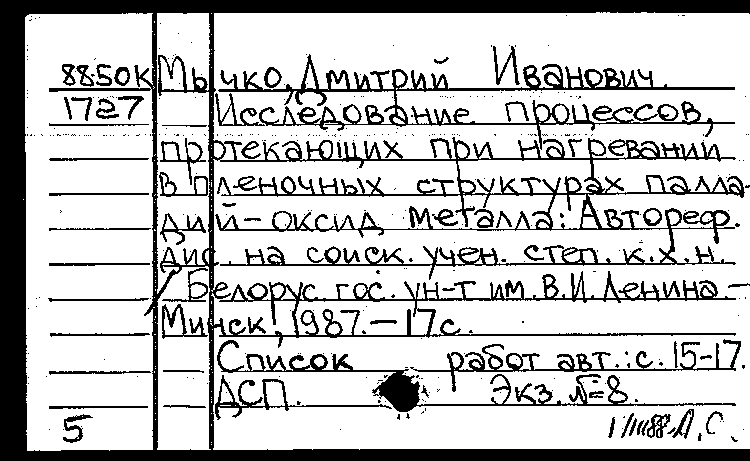 88.50к Мычко, Дмитрий Иванович.
1727 Исследование процессов,
протекающих при нагревании
в пленочных структурах палла-
дий-оксид металла: Автореф.
дис. на соиск. учен. степ. к.х.н.
/ Белорус. гос. ун-т им. В.И. Ленина. –
Минск!, 1987. – 17 с.
Список работ авт.: с. 15-17.
ДСП. Экз. №8.
5